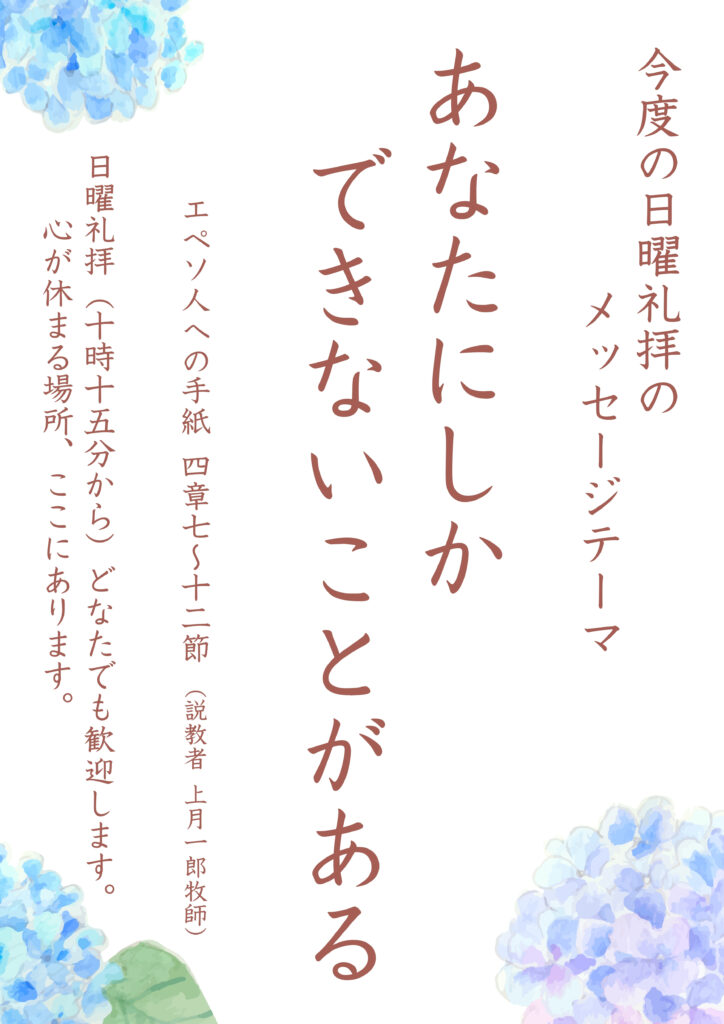 今度の日曜礼拝の
メッセージテーマ
あなたにしか
できないことがある
エペソ人への手紙 四章七～十二節 （説教者 上月一郎牧師）
日曜礼拝（十時十五分から）どなたでも歓迎します。
心が休まる場所、ここにあります。